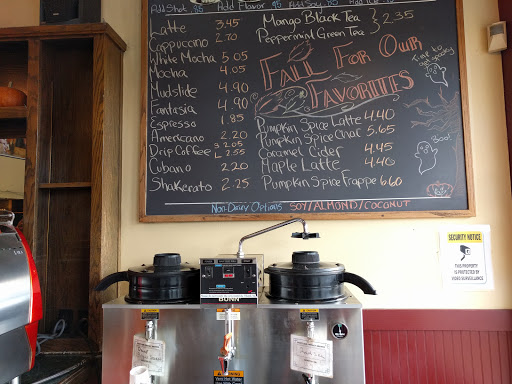 Add Shot .85 Add Flavor .95 Add Soy .80 Add
Latte 3.45
Cappuccino 2.70
White Mocha 5.05
Mocha 4.05
Mudslide 4.90
Fantasia 4.90
Espresso 1.85
Americano 2.20
Drip Coffee S 2.05
L 2.55
Cubano 2.20
Shakerato 2.25
Mango Black Tea
Peppermint Green Tea
2.35
Fall For Our
Favorites
Time to get spooky
Pumpkin Spice Latte 4.40
Pumpkin Spice Chai 5.65
Caramel Cider 4.45
Maple Latte 4.40
Pumpkin Spice Frappe 6.60
Boo!
Non-Dairy Options SOY/ALMOND/COCONUT
SECURITY NOTICE
THIS PROPERTY
IS PROTECTED BY
VIDEO SURVEILLANCE
BUNN